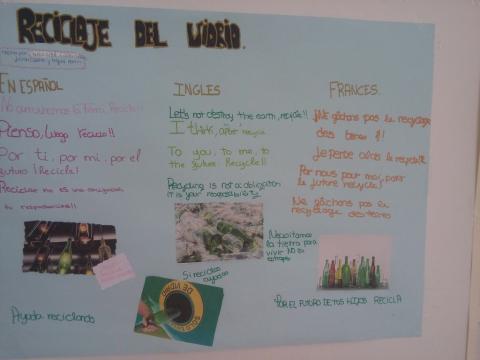 RECICLAJE DEL VIDRIO.
EN ESPAÑOL
No arruinemos la tierra, Recicla!!
Pienso, luego reciclo!!
Por ti, por mi, por el
futuro ¡Recicla!
Reciclar no es una obligación,
tu responsabilidad!!
Ayuda reciclando
INGLES
Let's not destroy the earth, recycle!!
I think, after recycle
To you, to me, to
the future. Recycle!!
Recycling is not a obligation
it is your responsibility
Si reciclas
ayudas
DE VIDRIO
FRANCES.
¡Ne gâchons pas le recyclage
des terres!
Je pense alors le recyclette
Per nous pour moi, pour
le future recycle!
Ne gâchons pas le
recyclage des terres
Necesitamos
la tierra para
vivir NO la
estropees
POR EL FUTURO DE TUS HIJOS RECICLA